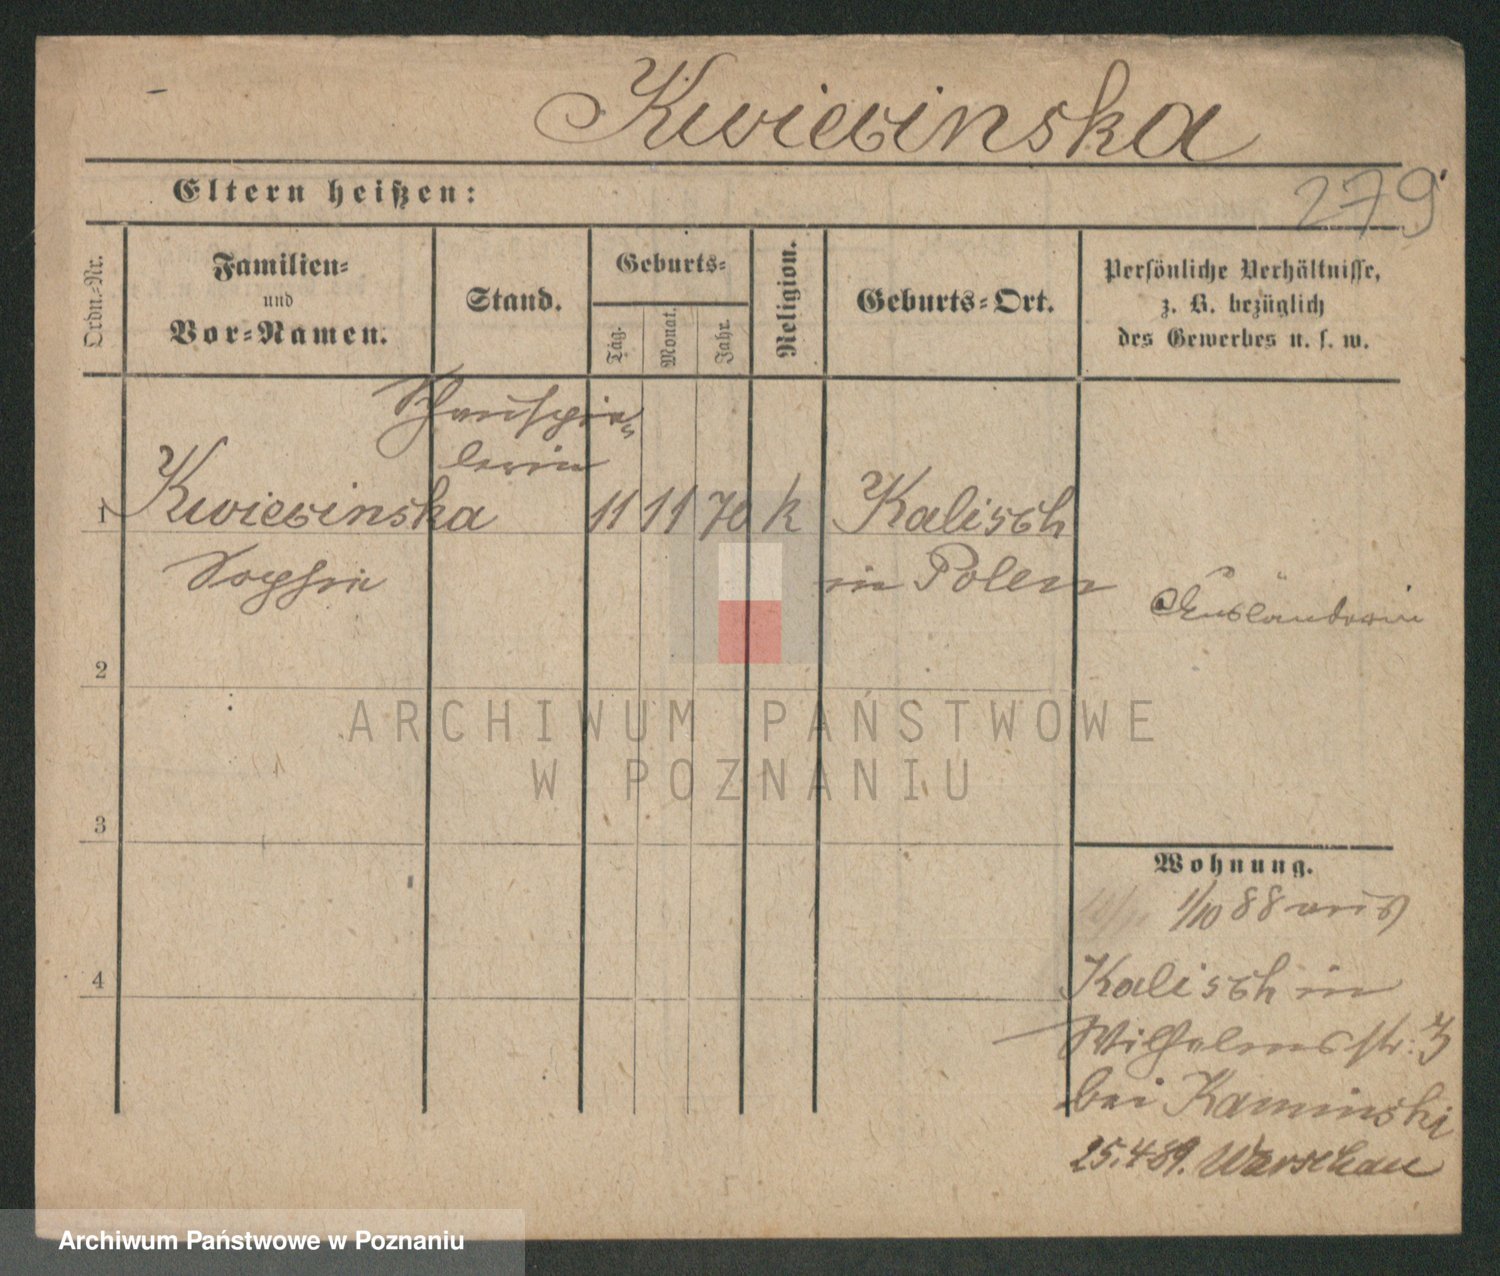 Kwiecinska
279
Eltern heißen:
Ordn.-Nr.
Familien-
und
Vor-Namen.
Stand.
Geburts-
Tag.
Monat.
Jahr.
Religion.
Geburts-Ort.
Persönliche Verhältnisse,
z. B. bezüglich
des Gewerbes u. s. w.
Schauspie-
lerin
1 Kwiecinska 11 11 70 k Kalisch
Sophie in Polen
Ausländerin
2
3
4
Wohnung.
1/10 88 aus
Kalisch in
Wilhelmsstr. 3
bei Kaminski
25.4 89. Warschau
ARCHIWUM PAŃSTWOWE
W POZNANIU
Archiwum Państwowe w Poznaniu